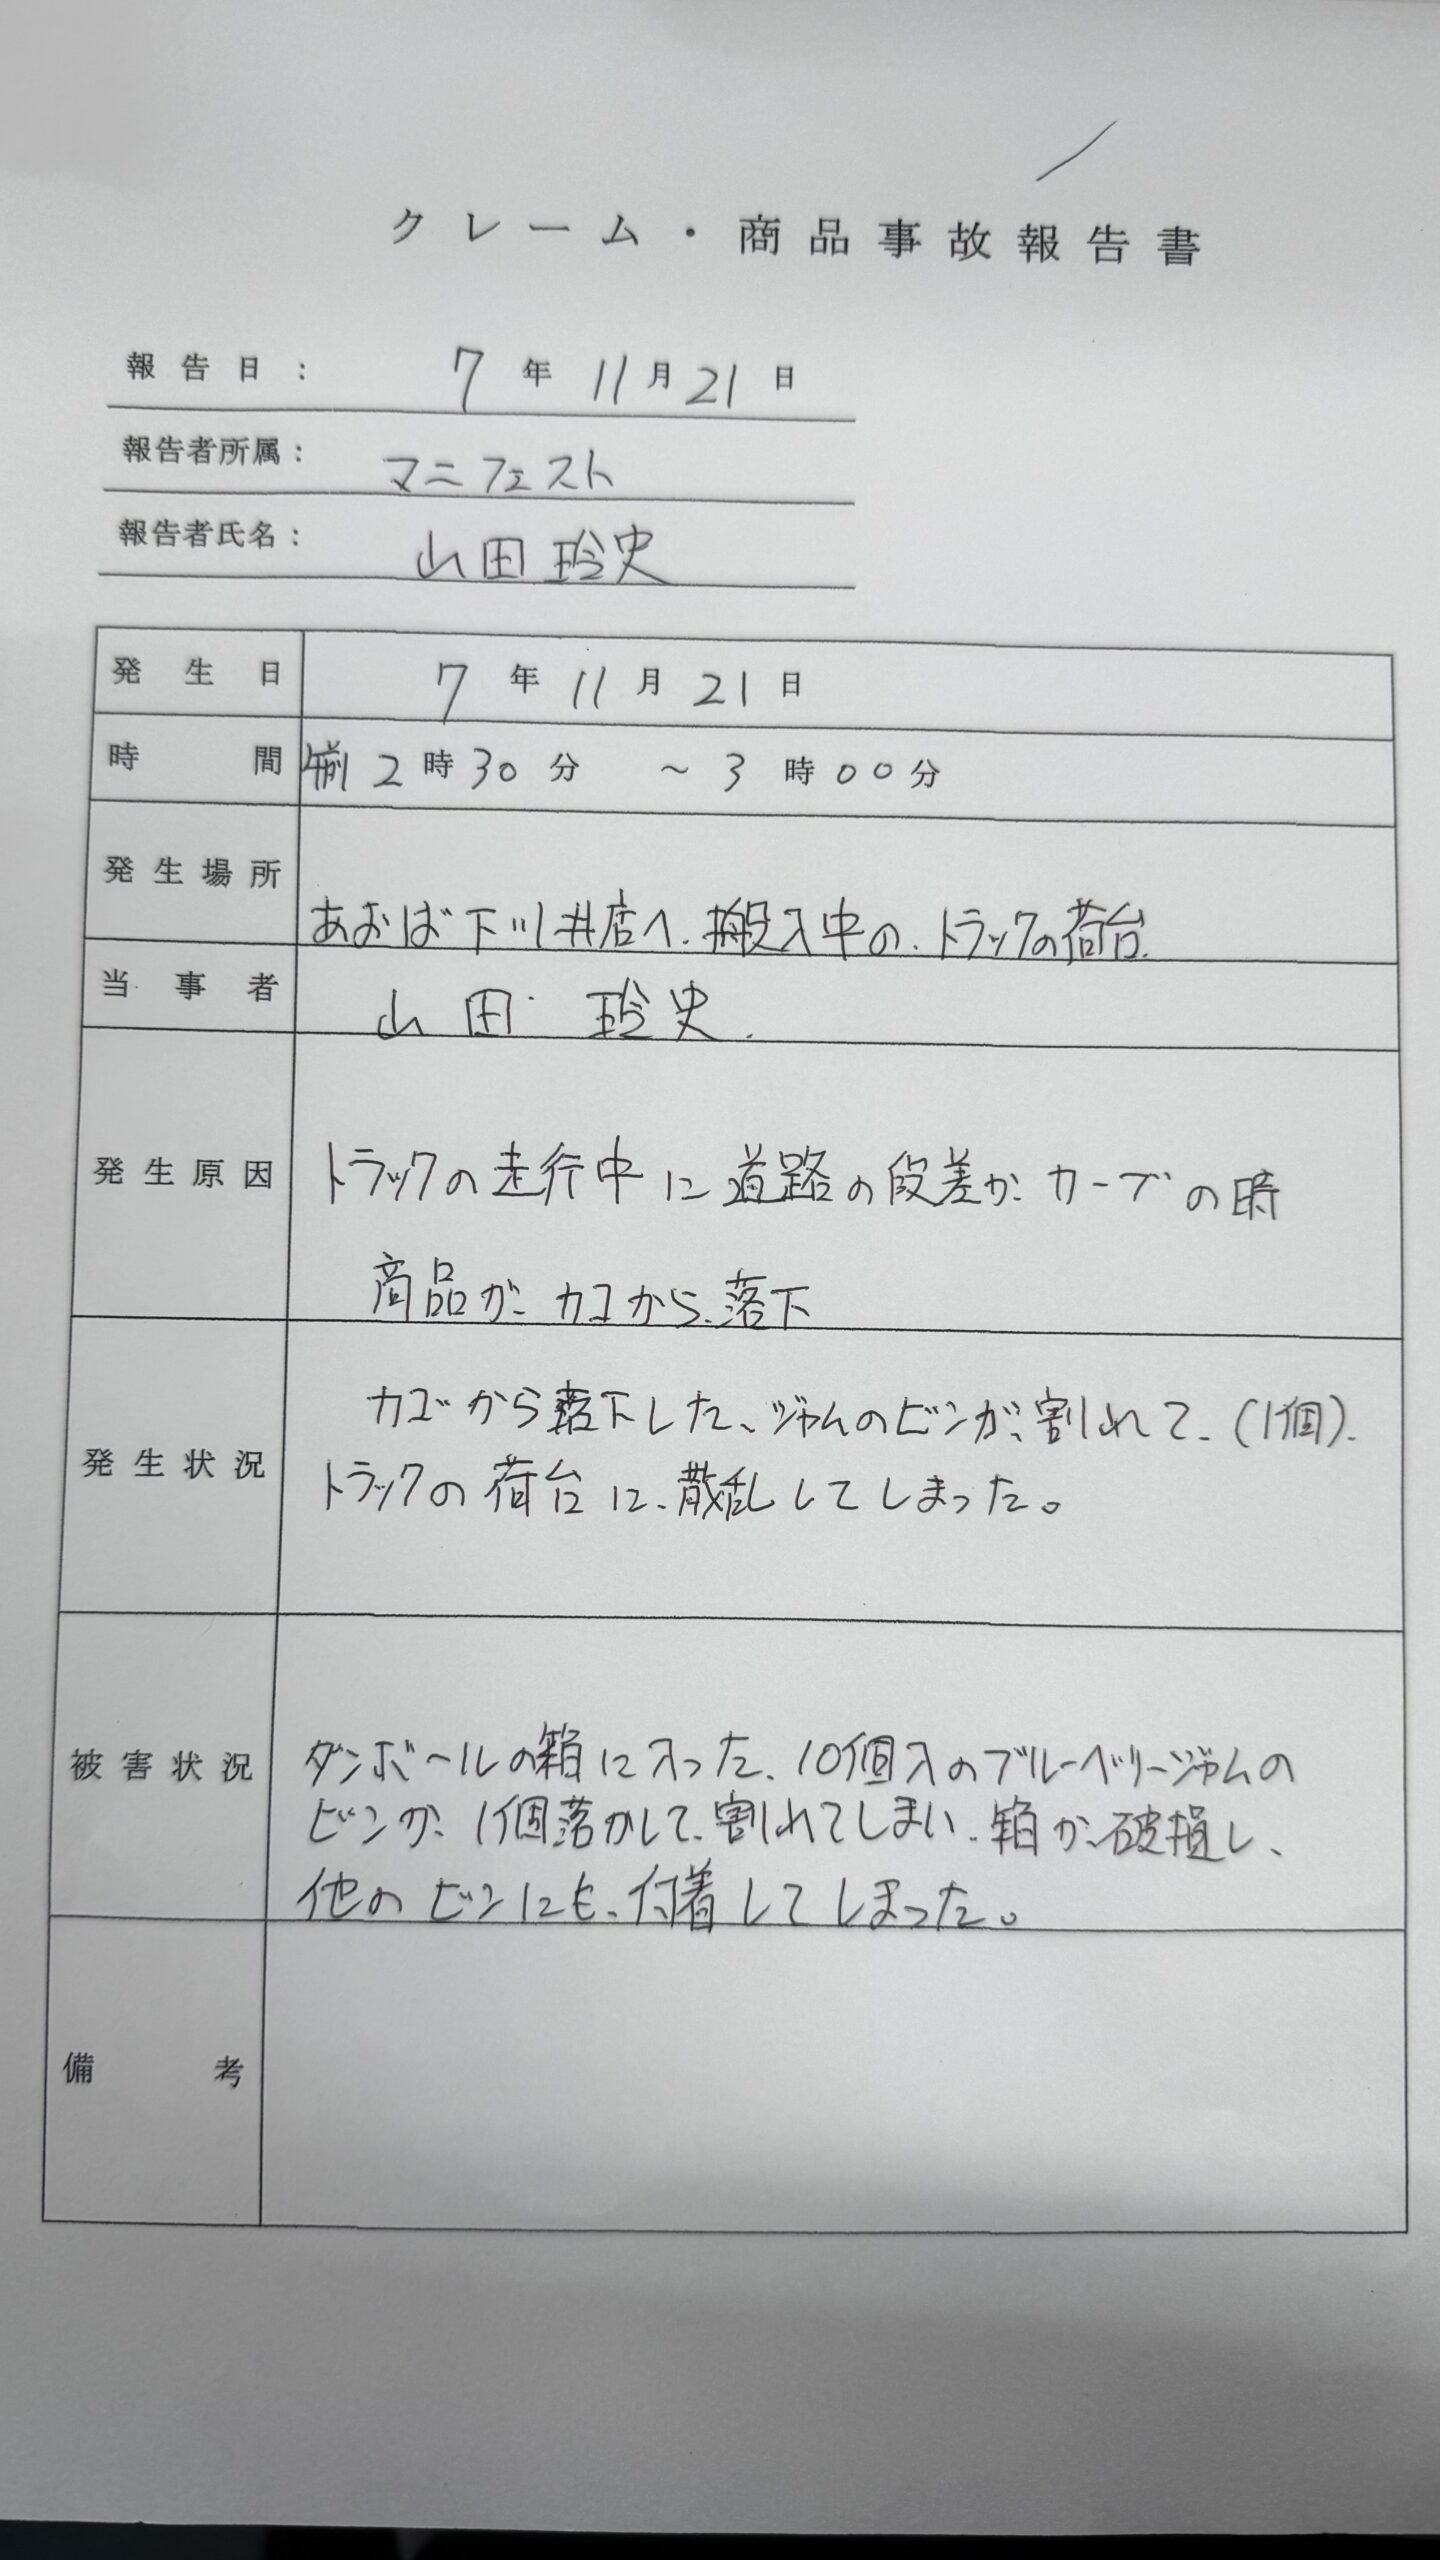 クレーム・商品事故報告書
報告日： 7年11月21日
報告者所属： マニフェスト
報告者氏名： 山田玲史
発生日 7年11月21日
時間 午前2時30分 ～3時00分
発生場所 あおば下川井店へ、搬入中の、トラックの荷台.
当事者 山田 玲史.
発生原因
トラックの走行中に道路の段差か、カーブの時
商品が、カゴから、落下
発生状況
カゴから落下した、ジャムのビンが、割れて、(1個).
トラックの荷台に、散乱してしまった。
被害状況
ダンボールの箱に入った、10個入のブルーベリージャムの
ビンが、1個落かして、割れてしまい、箱が、破損し、
他のビンにも、付着してしまった。
備考